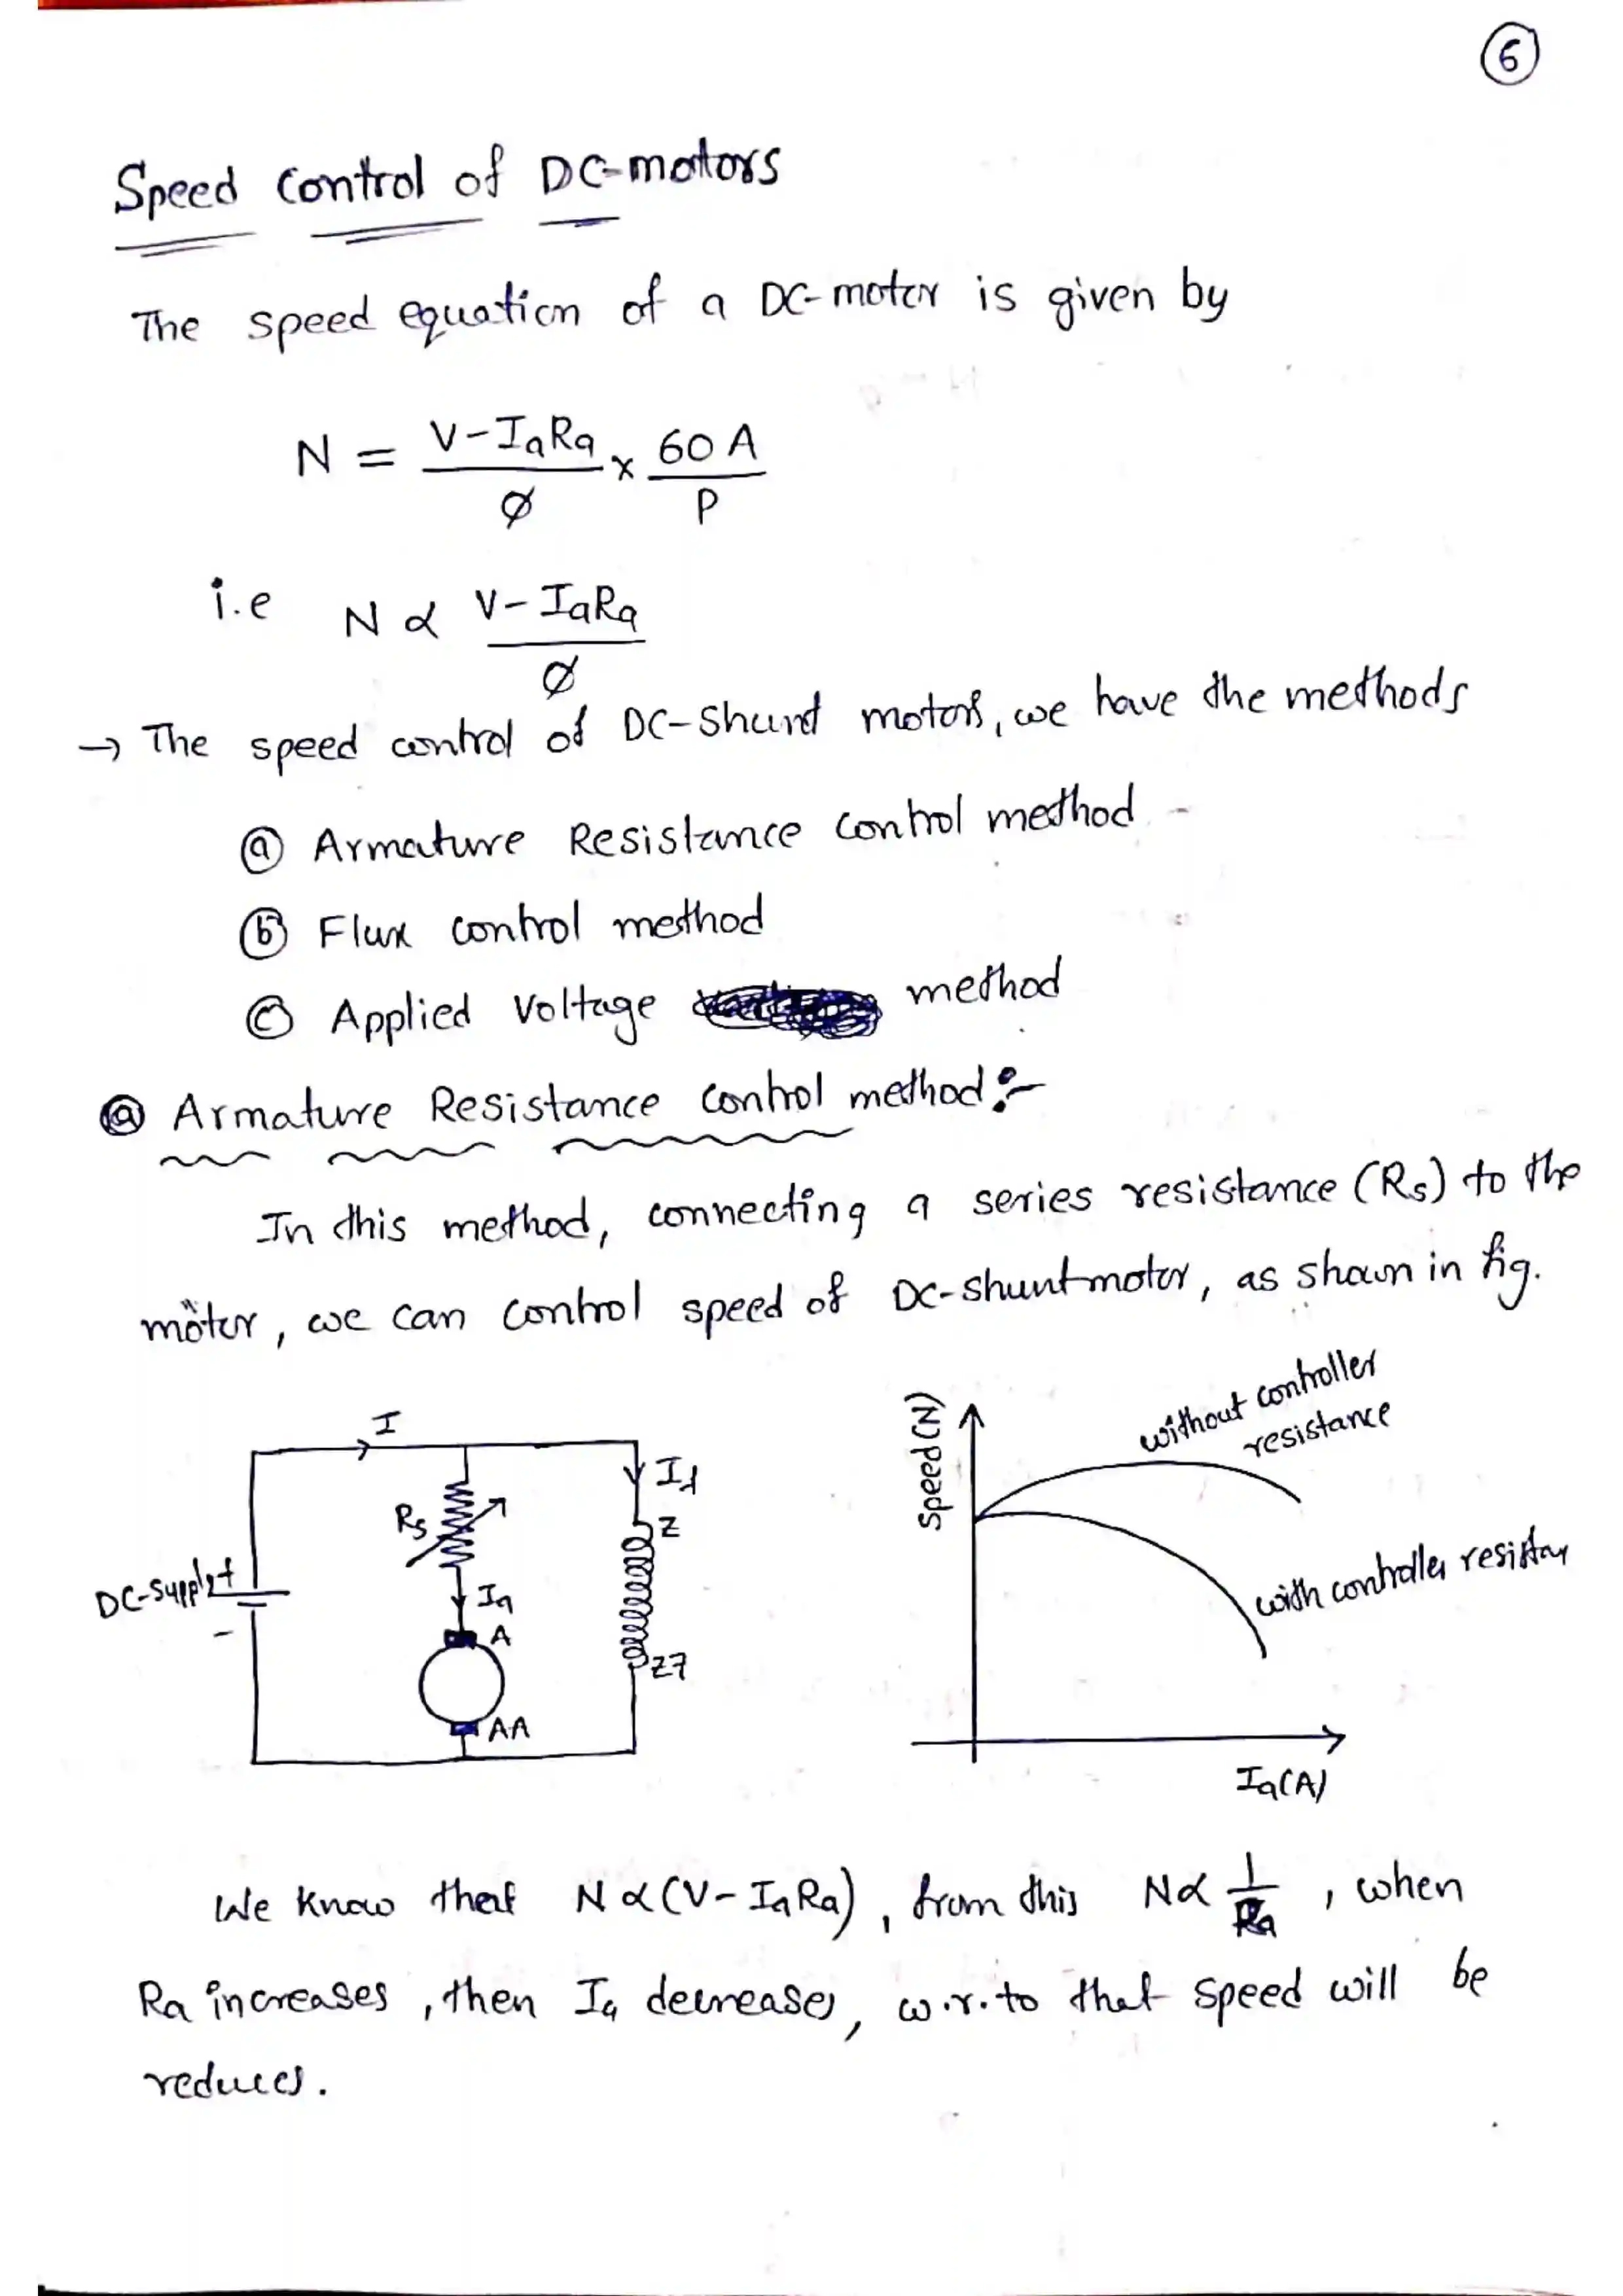 6
Speed Control of DC-motors
The speed equation of a DC-motor is given by
N = V-IaRa/Ø x 60 A/P
i.e N α V-IaRa/Ø
→ The speed control of DC-Shunt motors, we have the methods
ⓐ Armature Resistance Control method -
ⓑ Flux Control method
ⓒ Applied Voltage method
ⓐ Armature Resistance Control method :-
In this method, connecting a series resistance (Rs) to the
motor, we can control speed of DC-shunt motor, as shown in fig.
I
Rs
Ia
A
AA
DC-Supply +
-
If
Z
ZZ
Speed (N)
without controller
resistance
with controller
Ia(A)
We know that N α (V-IaRa), from this N α 1/Ra, when
Ra increases, then Ia decreases, w.r.to that speed will be
reduces.